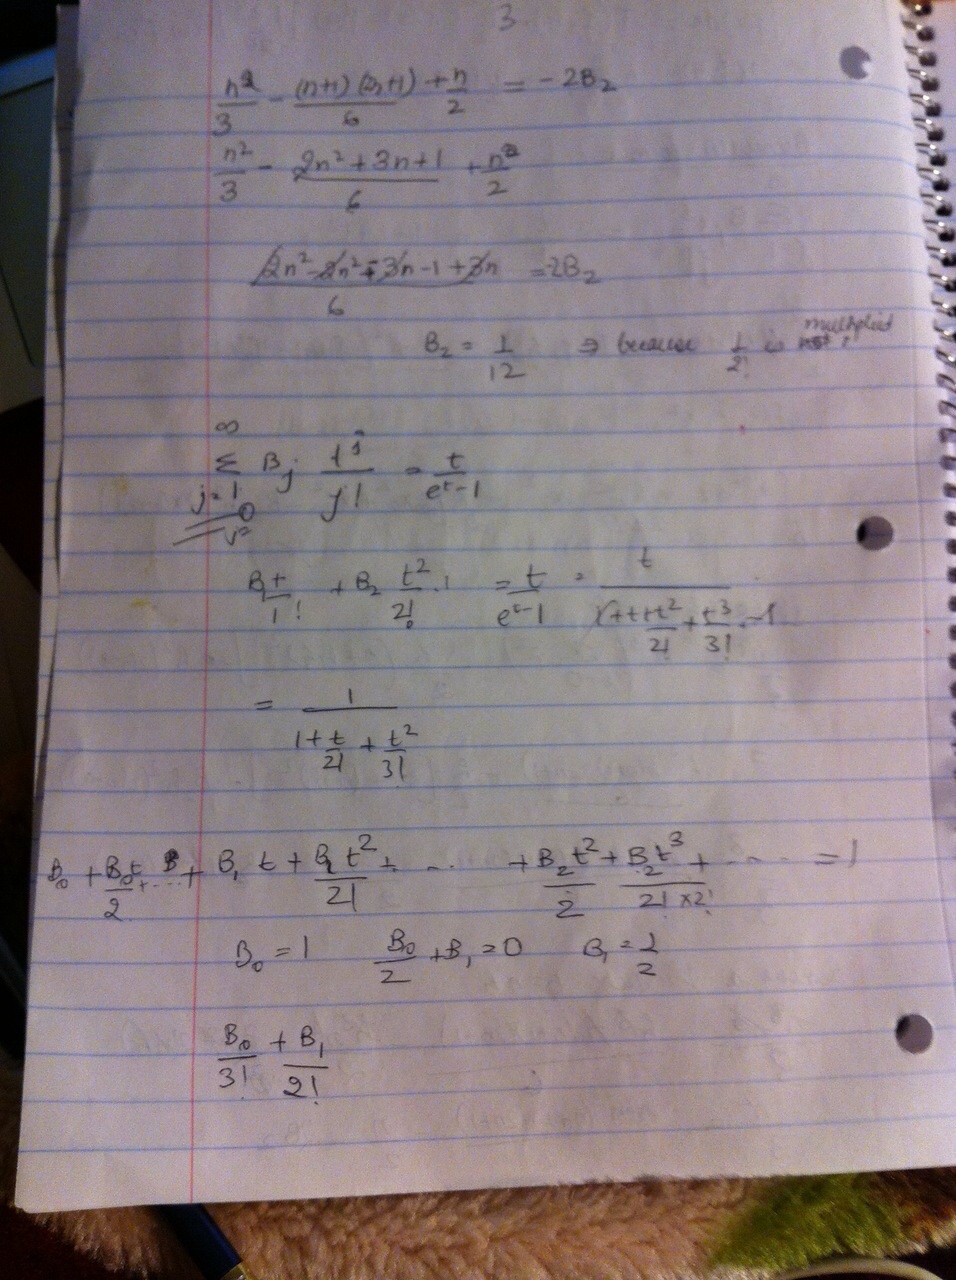 3
n²/3 - (n+1)(2n+1)/6 + n/2 = -2B₂
n²/3 - (2n²+3n+1)/6 + n/2
(2n²-2n²-3n-1+3n)/6 = -2B₂
B₂ = 1/12 ⇒ because 1/2! is multiplied
∞
Σ Bⱼ tʲ/j! = t/(eᵗ-1)
j=1
j=0
B₁t/1! + B₂ t²/2! = t/(eᵗ-1) = t/(1+t+t²/2!+t³/3!-1)
= 1/(1+t/2!+t²/3!)
B₀ + B₀t/2 + ... + B₁t + B₁t²/2! + .... + B₂t²/2 + B₂t³/(2!×2!) + .... = 1
B₀ = 1 B₀/2 + B₁ = 0 B₁ = 1/2
B₀/3! + B₁/2!